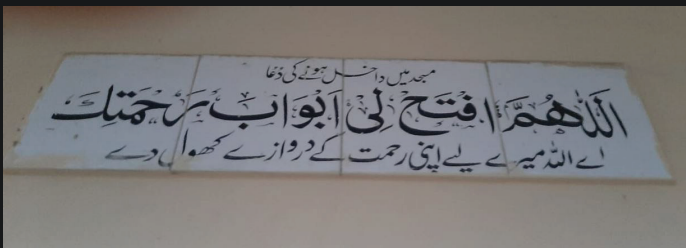 مسجد میں داخل ہونے کی دُعا
اَللّٰهُمَّ افْتَحْ لِیْ اَبْوَابَ رَحْمَتِكَ
اے اللہ میرے لیے اپنی رحمت کے دروازے کھول دے